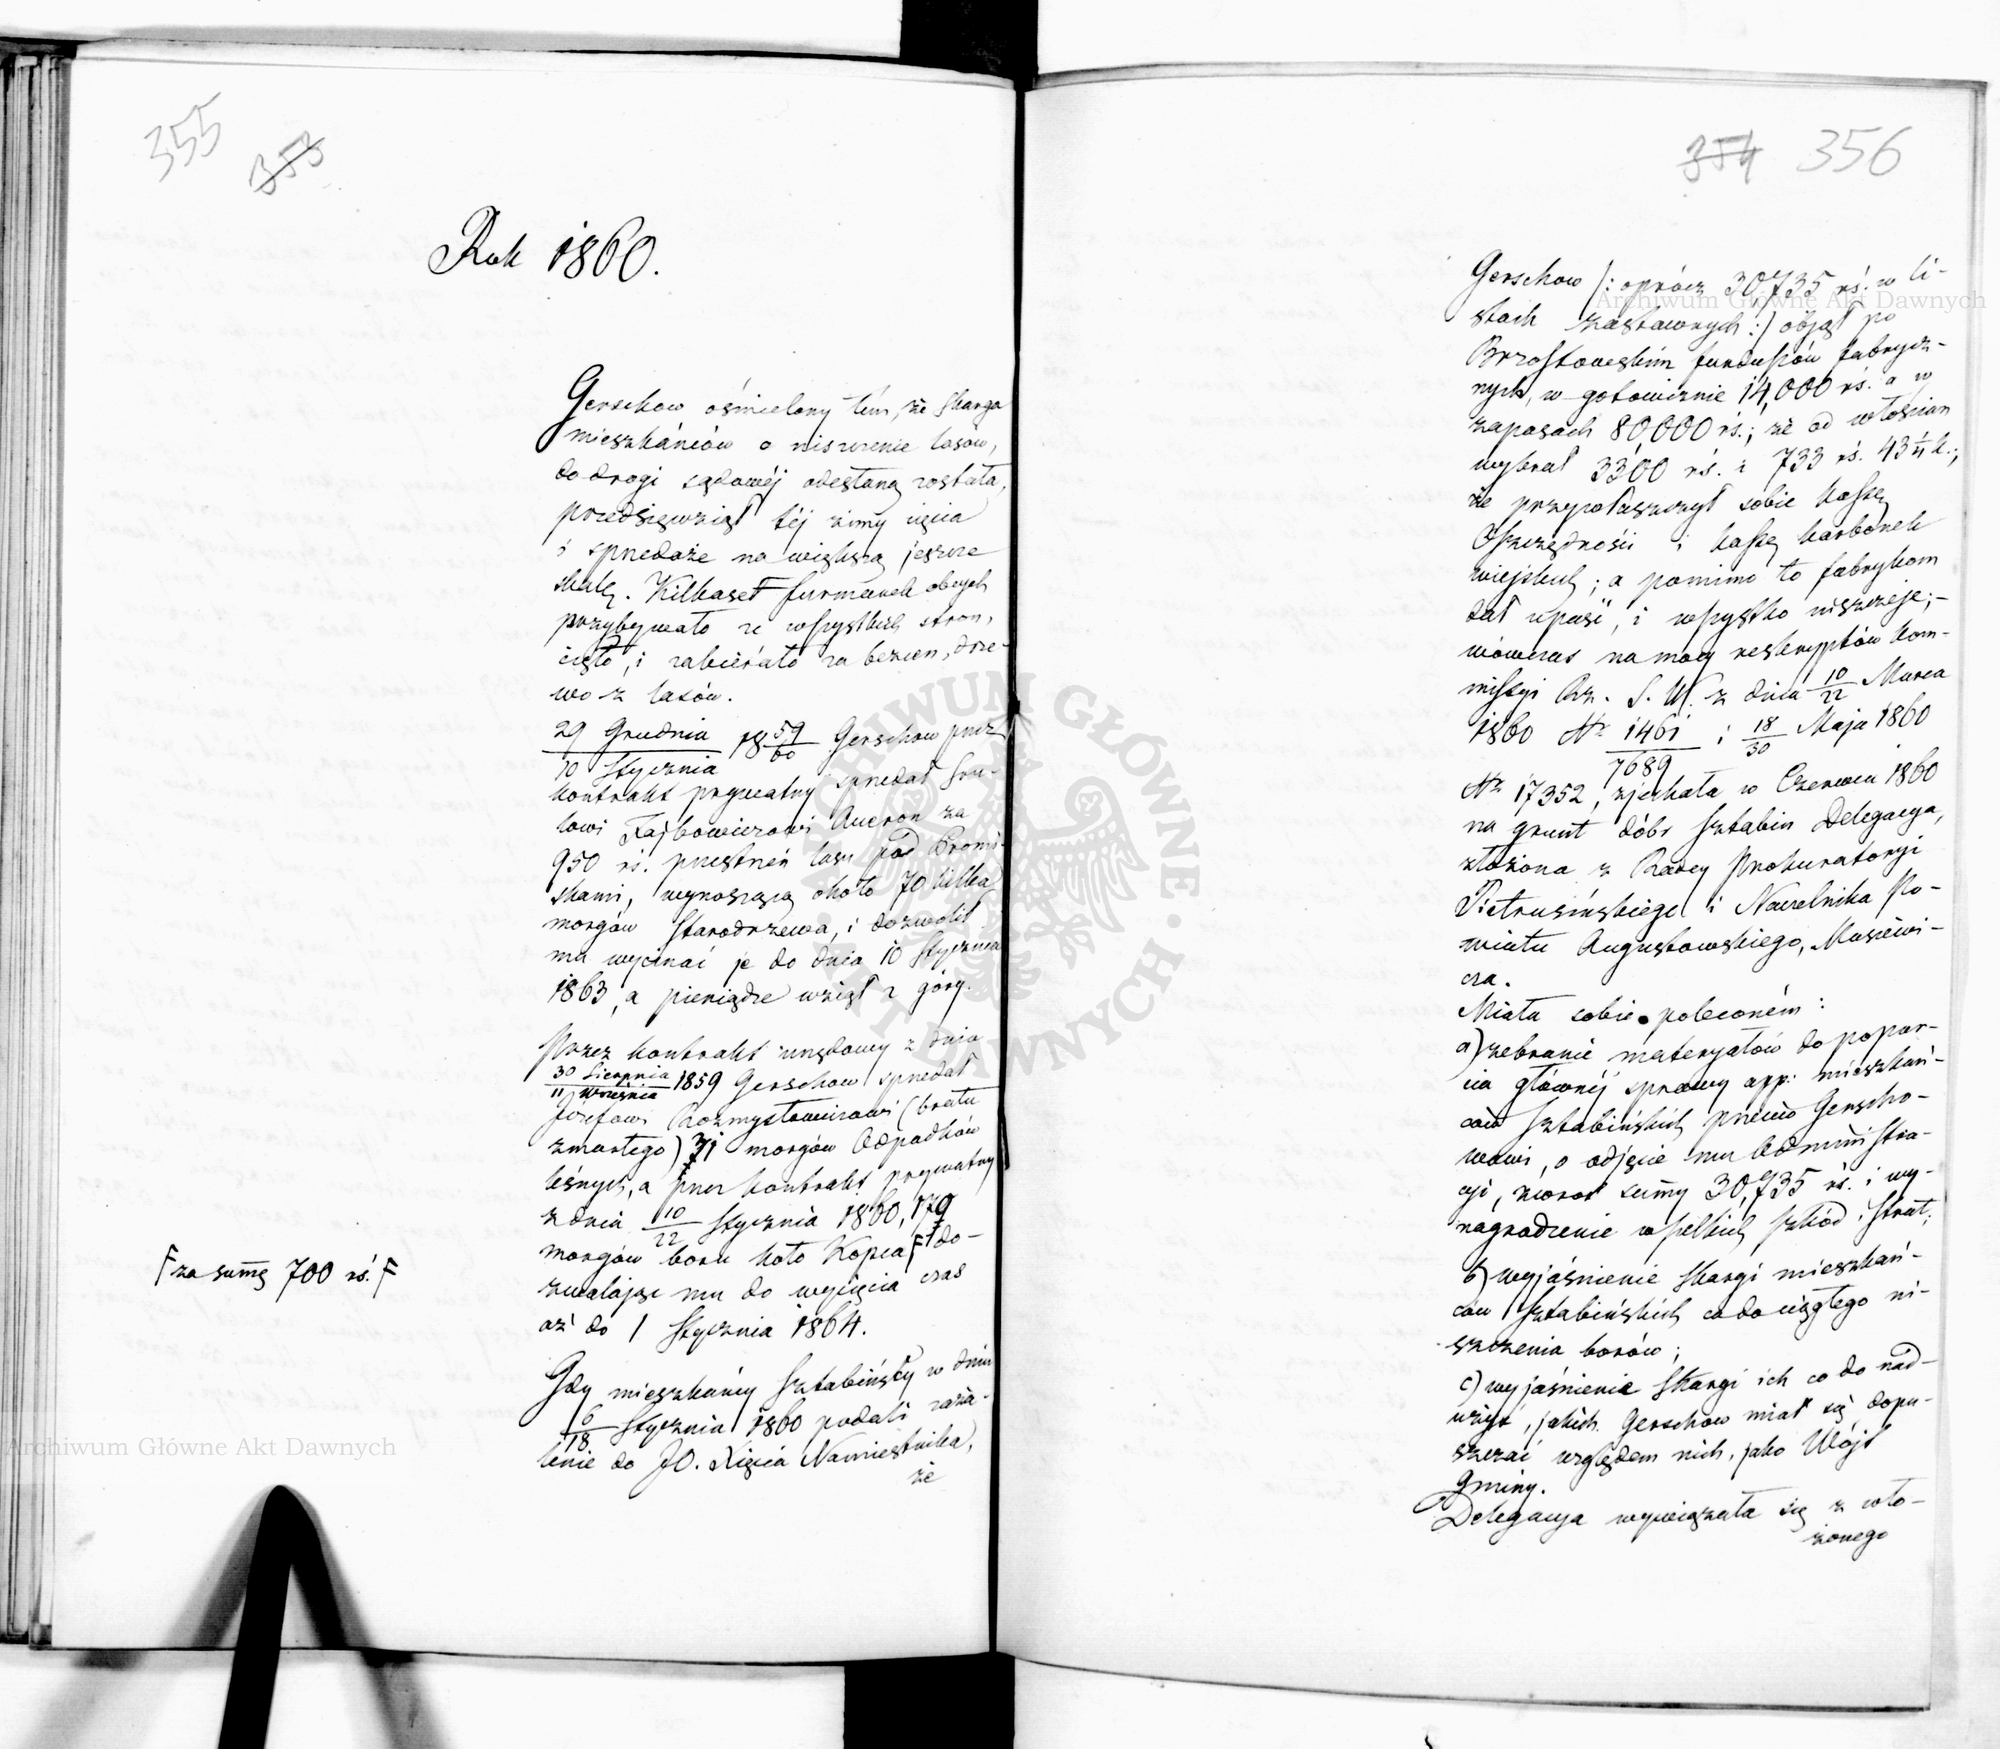 355
353
Rok 1860.
Gerschow ośmielony tém, że skarga
mieszkańców o niszczenie lasów,
do drogi sądowéj odesłaną została,
przedsięwziął téj zimy cięcia
i sprzedaże na większą jeszcze
skalę. Kilkaset furmanek obcych
przybywało ze wszystkich stron,
cięło, i zabierało za bezcen, drze-
wo z lasów.
29 Grudnia / 10 Stycznia 18 59/60 Gerschow przez
kontrakt prywatny sprzedał Sru-
lowi Fajbowiczowi Aucron za
950 rś. przestrzeń lasu pod Promi-
skami, wynoszącą około 70 kilka
morgów starodrzewa, i dozwolił
mu wycinać je do dnia 10 Stycznia
1863, a pieniądze wziął z góry.
Przez kontrakt urzędowy z dnia
30 Sierpnia / 11 Września 1859 Gerschow sprzedał
Józefowi Rozmysłowiczowi (bratu
zmarłego) 31 morgów Odpadków
leśnych, a przez kontrakt prywatny
z dnia 10/22 Stycznia 1860, 179
morgów boru koło Kopca F do-
zwalając mu do wycięcia czas
aż do 1 Stycznia 1864.
F za summę 700 rś. F
Gdy mieszkańcy Sztabińscy w dniu
6/18 Stycznia 1860 podali zaża-
lenie do JO. Xięcia Namiestnika,
że
354 356
Gerschow /: oprócz 30,735 rś. w li-
stach zastawnych :/ objął po
Brzostowskim funduszów fabrycz-
nych, w gotowiźnie 14,000 rś. a w
zapasach 80,000 rś.; że od włościan
wybrał 3300 rś. i 733 rś. 43 k.;
że przywłaszczył sobie kassę
Oszczędności i kassę karbonek
wiejskich; a pomimo to fabrykom
dał upaść, i wszystko niszczeje;-
wówczas na mocy reskryptów Kom-
missyi Rz. S. W. z dnia 10/22 Marca
1860 Nr 1461/7689 i 18/30 Maja 1860
Nr 17352, zjechała w Czerwcu 1860
na grunt dóbr Sztabin Delegacya,
złożona z Radcy Prokuratoryi
Pietrusińskiego i Naczelnika Po-
wiatu Augustowskiego, Musiewi-
cza.
Miała sobie poleconém:
a) zebranie materyałów do popar-
cia głównéj sprawy app: mieszkań-
ców Sztabińskich przeciw Gerscho-
wowi, o odjęcie mu Administra-
cyi, zwrot summy 30,735 rś. i wy-
nagrodzenie wszelkich szkód i strat;
b) wyjaśnienie skargi mieszkań-
ców Sztabińskich co do ciągłego ni-
szczenia borów;
c) wyjaśnienie skargi ich co do nad-
użyć, jakich Gerschow miał się dopu-
szczać względem nich, jako Wójt
Gminy.
Delegacya wywiązała się z wło-
żonego
Archiwum Główne Akt Dawnych
Archiwum Główne Akt Dawnych
ARCHIWUM GŁÓWNE AKT DAWNYCH